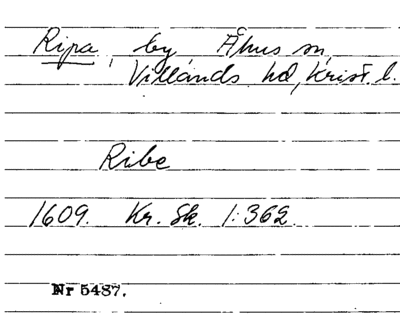 Ripa, by Åhus sn,
Villands hd, Krist. l.
Ribe
1609. Kr. Sk. 1:362.
Nr 5487.